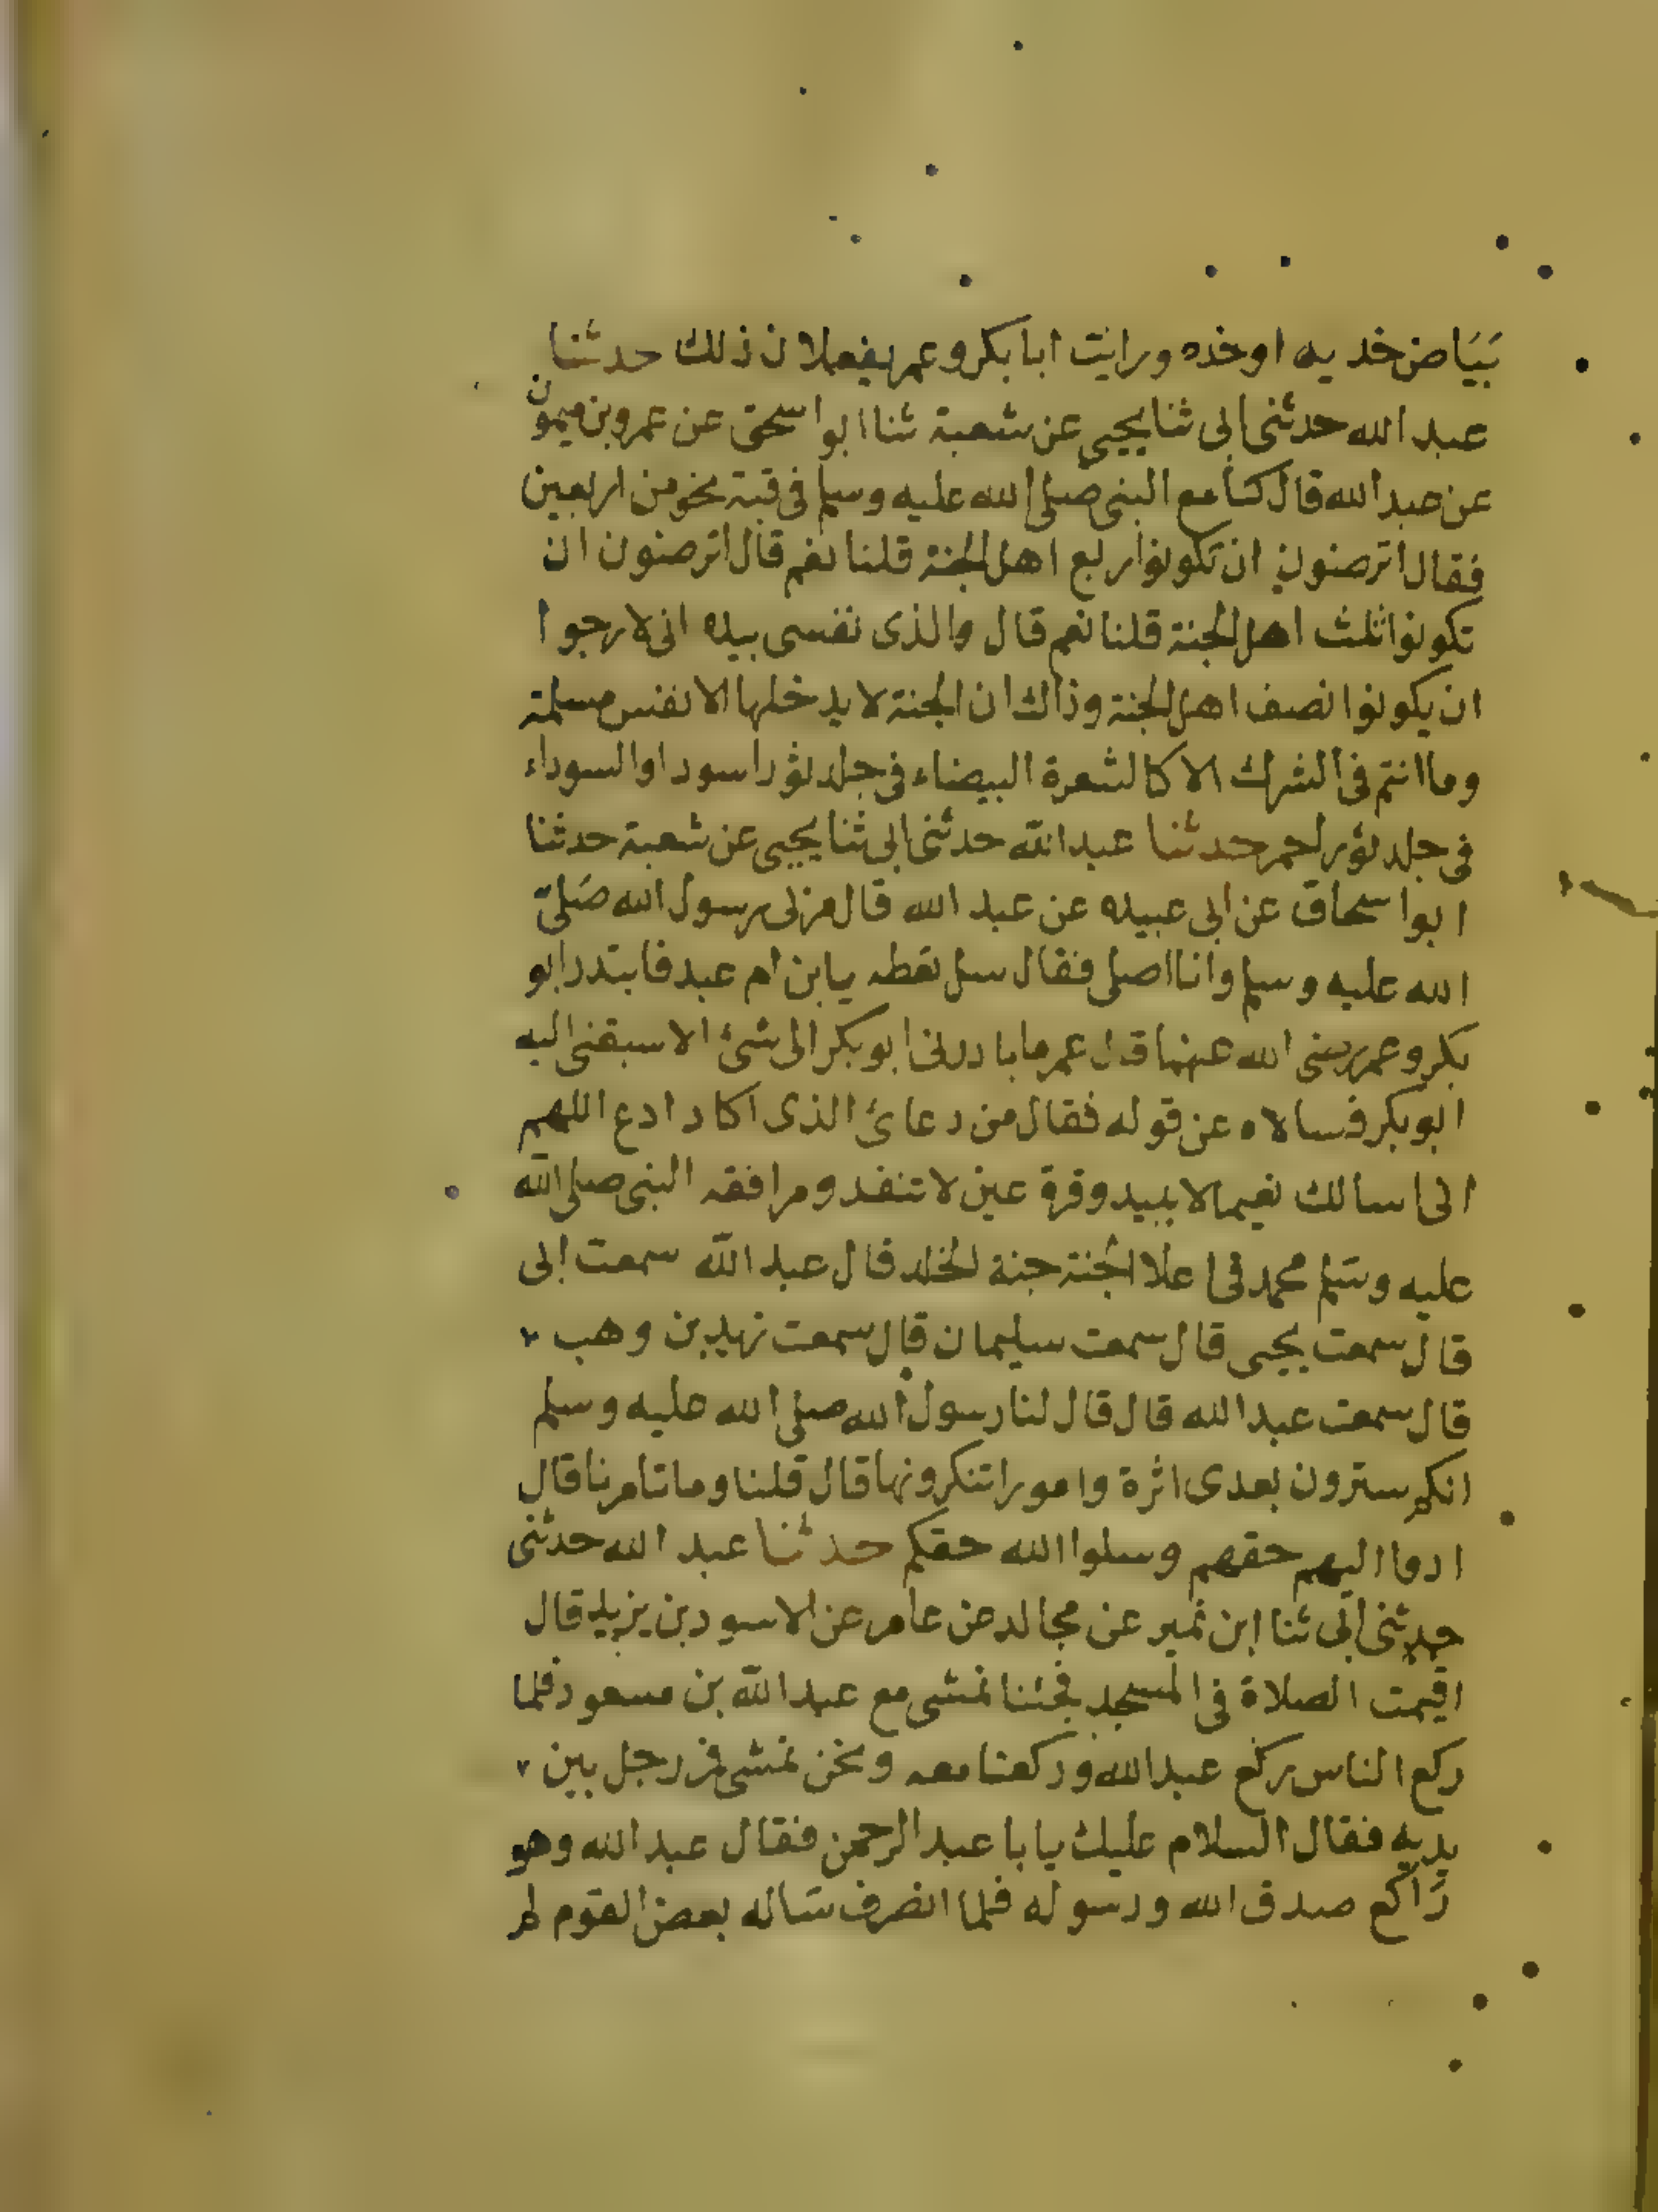 بَيَاض خديه او خده ورايت ابا بكر وعمر يفعلان ذلك حدثنا
عبد الله حدثنى ابى ثنا يحيى عن شعبة ثنا ابو اسحق عن عمرو بن ميمون
عن عبد الله قال كنا مع النبى صلى الله عليه وسلم فى قبة نحو من اربعين
فقال اترضون ان تكونوا ربع اهل الجنة قلنا نعم قال اترضون ان
تكونوا ثلث اهل الجنة قلنا نعم قال والذى نفسى بيده انى لارجوا
ان يكونوا نصف اهل الجنة وذاك ان الجنة لا يدخلها الا نفس مسلمة
وما انتم فى الشرك الا كالشعرة البيضاء فى جلد ثور اسود او السوداء
فى جلد ثور احمر حدثنا عبد الله حدثنى ابى ثنا يحيى عن شعبة حدثنا
ابو اسحاق عن ابى عبيده عن عبد الله قال مر بى رسول الله صَلىّ
الله عليه وسلم وانا اصلى فقال سل تعطه يا بن ام عبد فابتدر ابو
بكر وعمر رضى الله عنهما قال عمر ما بادرنى ابو بكر الى شئ الا سبقنى اليه
ابو بكر فسالاه عن قوله فقال من دعائ الذى اكاد ادع اللهم
انى اسالك نعيما لا يبيد وقرة عين لا تنفد ومرافقه النبى صلى الله
عليه وسَلم محمد فى اعلا الجنة جنة الخلد قال عبد الله سمعت ابى
قال سمعت يحيى قال سمعت سليمان قال سمعت زيد بن وهب
قال سمعت عبد الله قال قال لنا رسول الله صلى الله عليه وسلم
انكم سترون بعدى اثرة وامورا تنكرونها قال قلنا وما تامرنا قال
ادوا اليهم حقهم وسلوا الله حقكم حدثنا عبد الله حدثنى
حدثنى ابى ثنا ابن نمير عن مجالد عن عامر عن الاسود بن يزيد قال
اقيمت الصلاة فى المسجد فجئنا نمشى مع عبد الله بن مسعود فلما
ركع الناس ركع عبد الله وركعنا معه ونحن نمشى فمر رجل بين
يديه فقال السلام عليك يا با عبد الرحمن فقال عبد الله وهو
رَاكع صدق الله ورسوله فلما انصرف سَاله بعض القوم لم